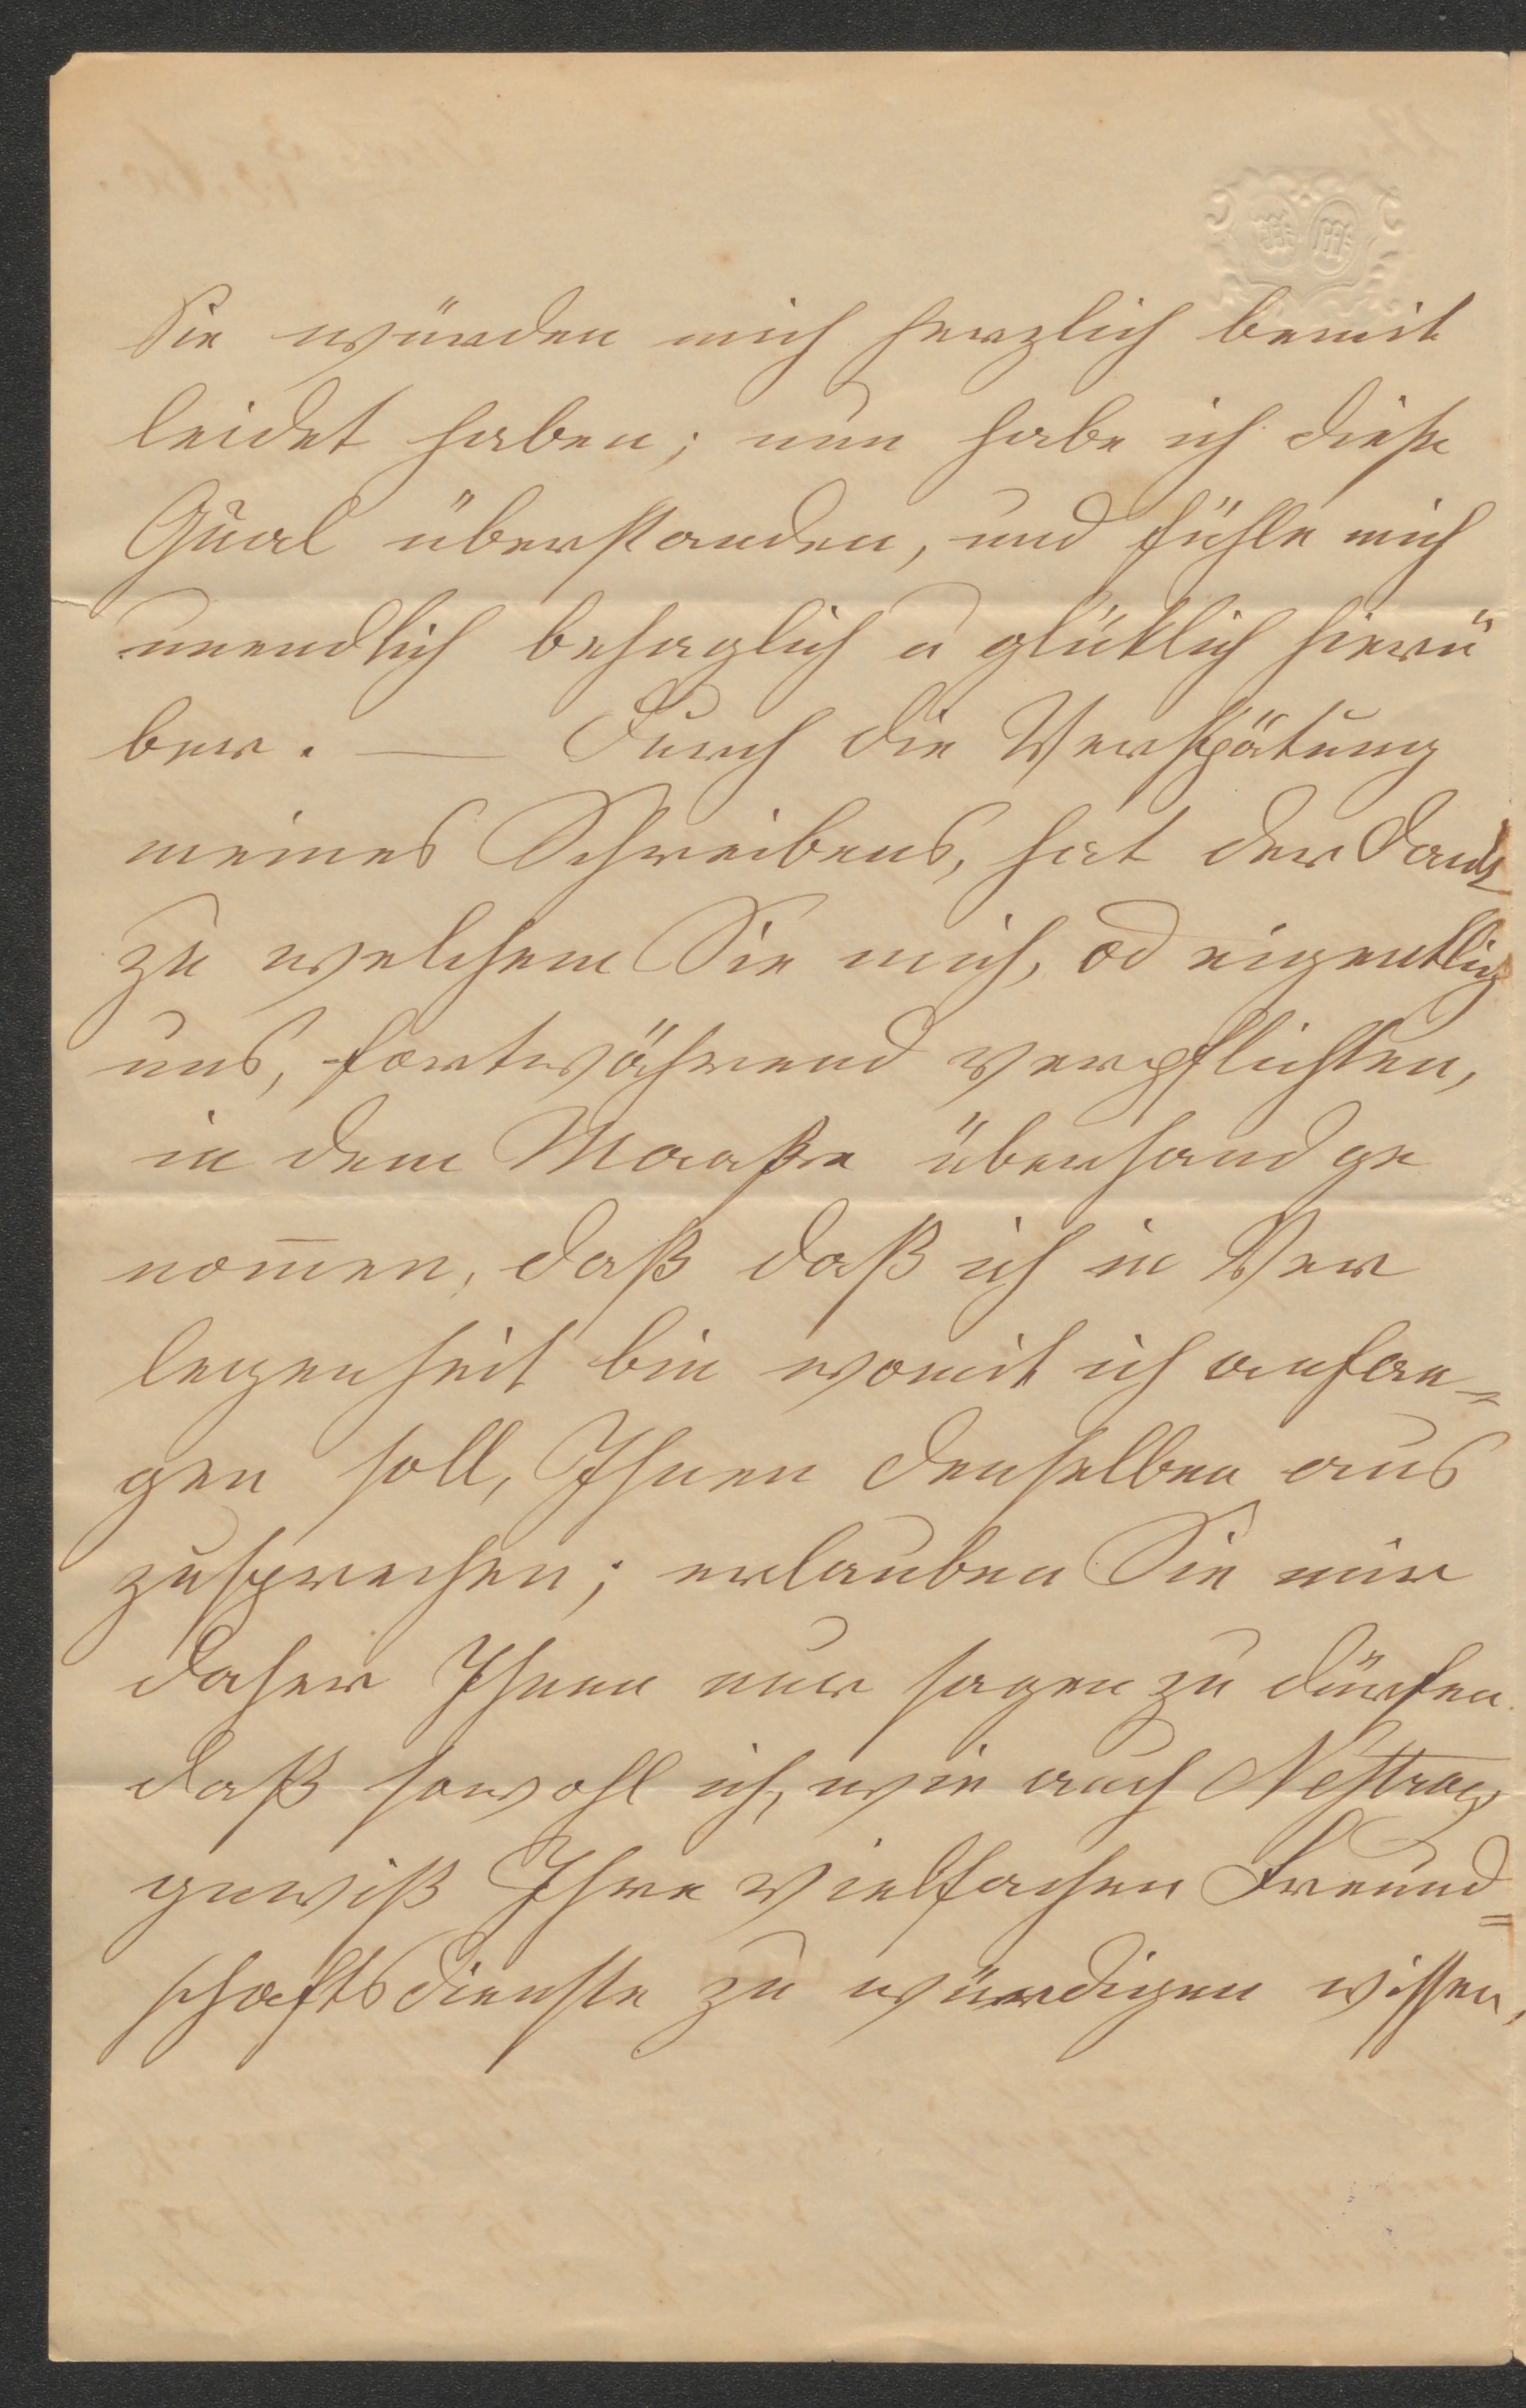 Sie würden mich herzlich bemit
leidet haben; nun habe ich diese
Qual überstanden, und fühle mich
unendlich behaglich u glüklich hierü
ber. — Durch die Verspätung
meines Schreibens, hat der Dank
zu welchem Sie mich, od eigentlich
uns, fortwährend verpflichten,
in dem Maaße überhand ge
nom̅en, daß daß ich in Ver
legenheit bin womit ich anfan=
gen soll, Ihnen denselben aus
zusprechen; erlauben Sie mir
daher Ihnen nur sagen zu dürfen
daß sowohl ich, wie auch Nestroy
gewiß Ihre vielfachen Freund=
schaftsdienste zu würdigen wissen,